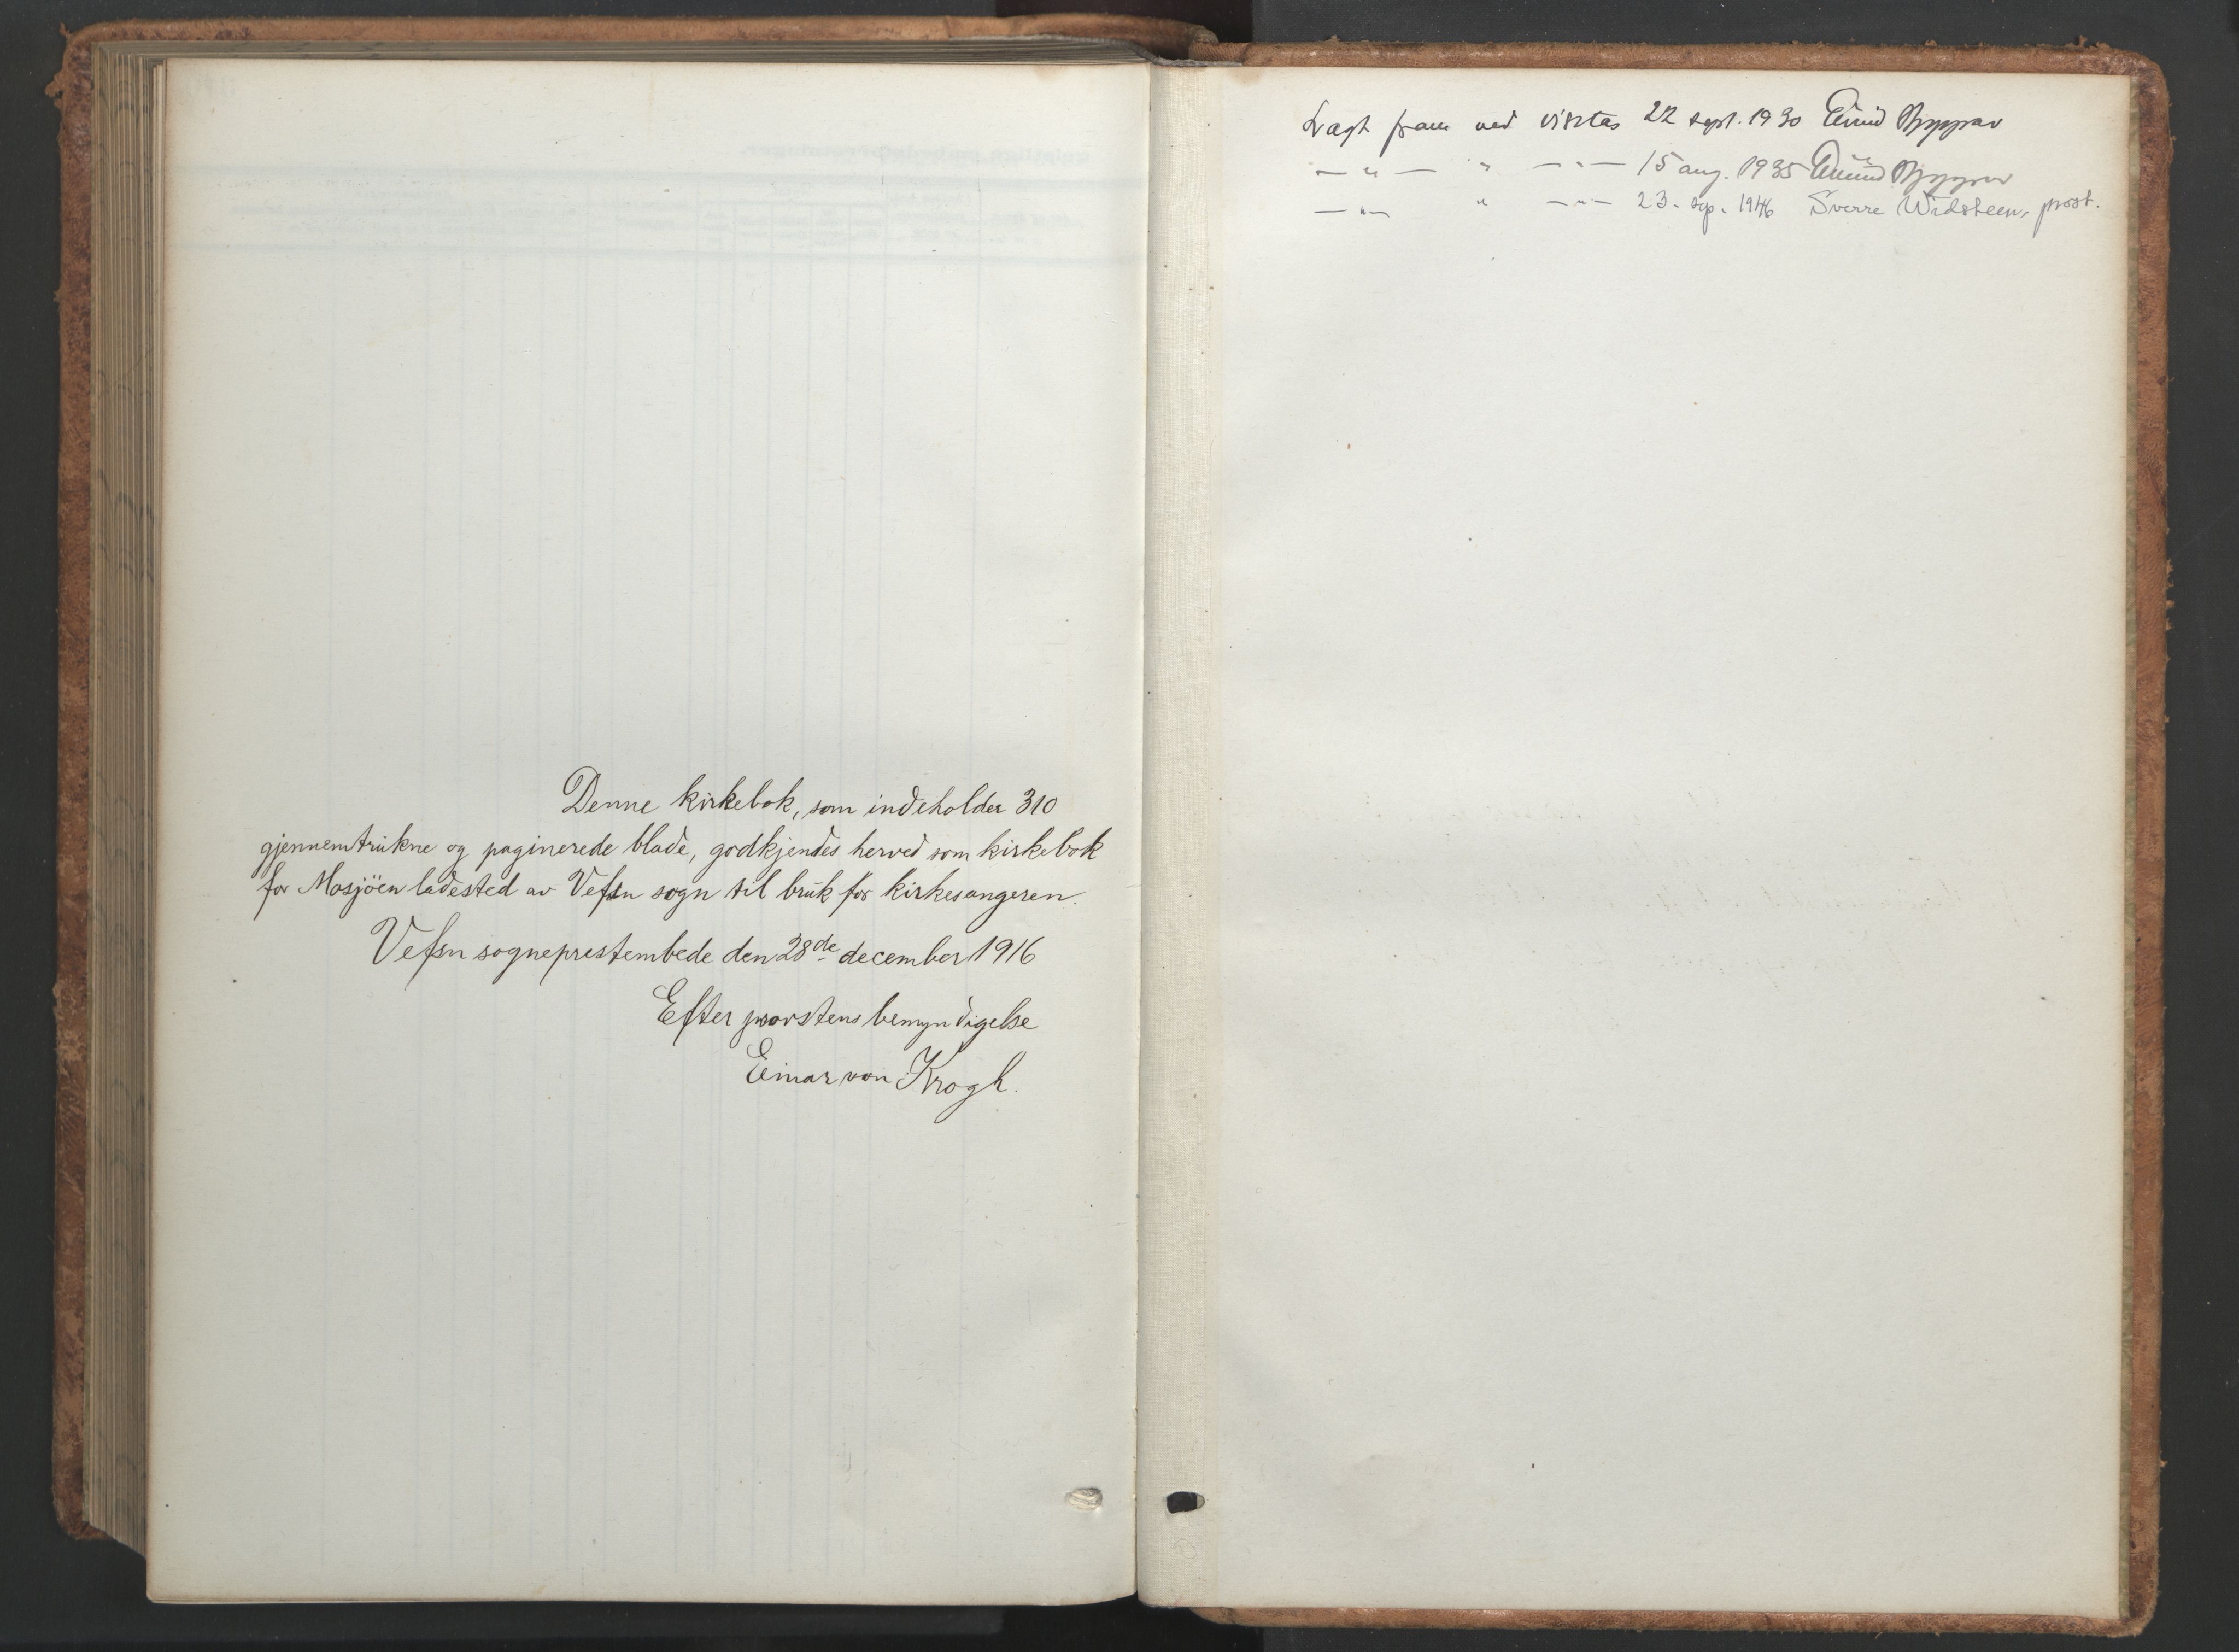 Denne kirkebok, som indeholder 310
gjennemtrukne og paginerede blade, godkjendes herved som kirkebok
for Mosjöen ladested av Vefsn sogn til bruk for kirkesangeren.
Vefsn sogneprestembede den 28de december 1916
Efter provstens bemyndigelse
Einar von Krogh.
Lagt fram ved visitas 22 sept. 1930 Eivind
— " — " — " — 15 aug. 1935 Eivind
— " — " — " — 23. sep. 1946 Sverre Widsteen, prost.